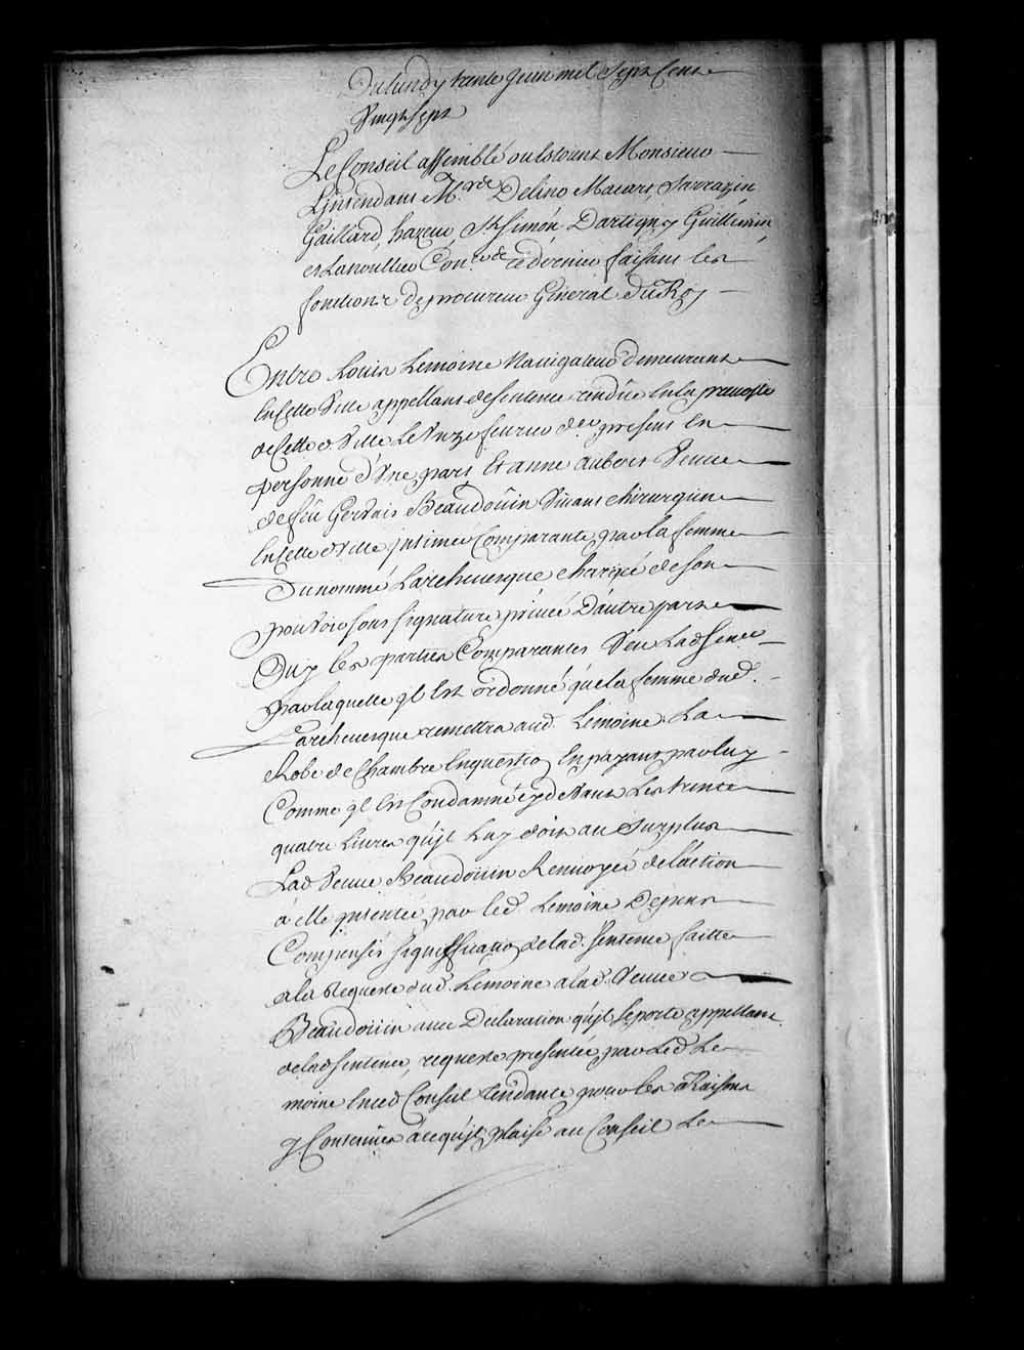 Du lundy trente Juin mil Sept Cent
Vingt sept
Le Conseil assemblé ou Estoient Monsieur
Lintendant Mrs Delino Macart Sarrazin
Gaillard, hazeur St Simon Dartigny Guillimin
et Lanoullier Conrs ce dernier faisant les
fonctions de procureur General Du Roy
Entre Louis Lemoine Navigateur demeurant
En Cette Ville appellant de sentence rendüe En la prevosté
de Cette Ville Le Unze feurier der present En
personne d'Une part Et anne aubert Veuve
de feu Gervais Beaudoüin Vivant chirurgien
En Cette Ville jntimée Comparante par la femme
Du nommé Larcheuesque chargée de son
pouvoir sous signature privée D'autre part
Ouy les parties Comparantes Veu Lad Sence
par laquelle jl Est ordonné que la femme dud.
Larcheuesque remettra aud. Lemoine La
Robe de Chambre En question En payant par luy
Comme jl Est Condamné cy devant Les trente
quatre Livres qu'jl Luy doit au Surplus
Lad Veuve Beaudoüin Renvoyée de l'action
à elle jntentée par led. Lemoine Depens
Compensés signiffication de lad. Sentence faitte
a la Requeste dud. Lemoine a lad. Veuve
Beaudoüin avec Declaration qu'jl se porte appellant
de lad sentence, requeste presentée par Led Le
moine En ced Conseil tendante pour les Raisons
y Contenües à ce qu'jl plaise au Conseil Le